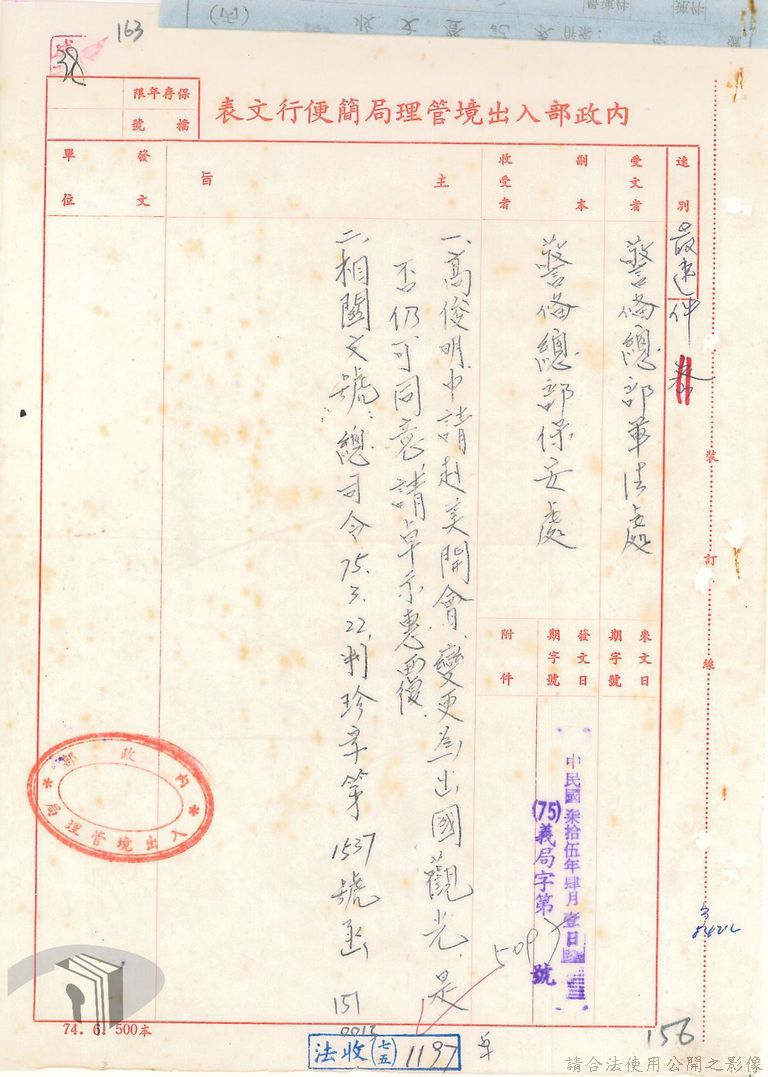 163
(丙)
38
內政部入出境管理局簡便行文表
保存年限
檔號
速別
最速件
受文者
警備總部軍法處
副本收受者
警備總部保安處
來文日期字號
發文日期字號
中民國柒拾伍年肆月壹日
(75)義局字第5097號
附件
主旨
一、高俊明申請赴美開會，變更為出國觀光，是
否仍可同意，請卓示惠覆。
二、相關文號：總司令75.3.22.判珍字第1537號函
發文單位
內政部入出境管理局
裝訂線
151
156
法收(七五)1197
74. 6. 500本
請合法使用公開之影像